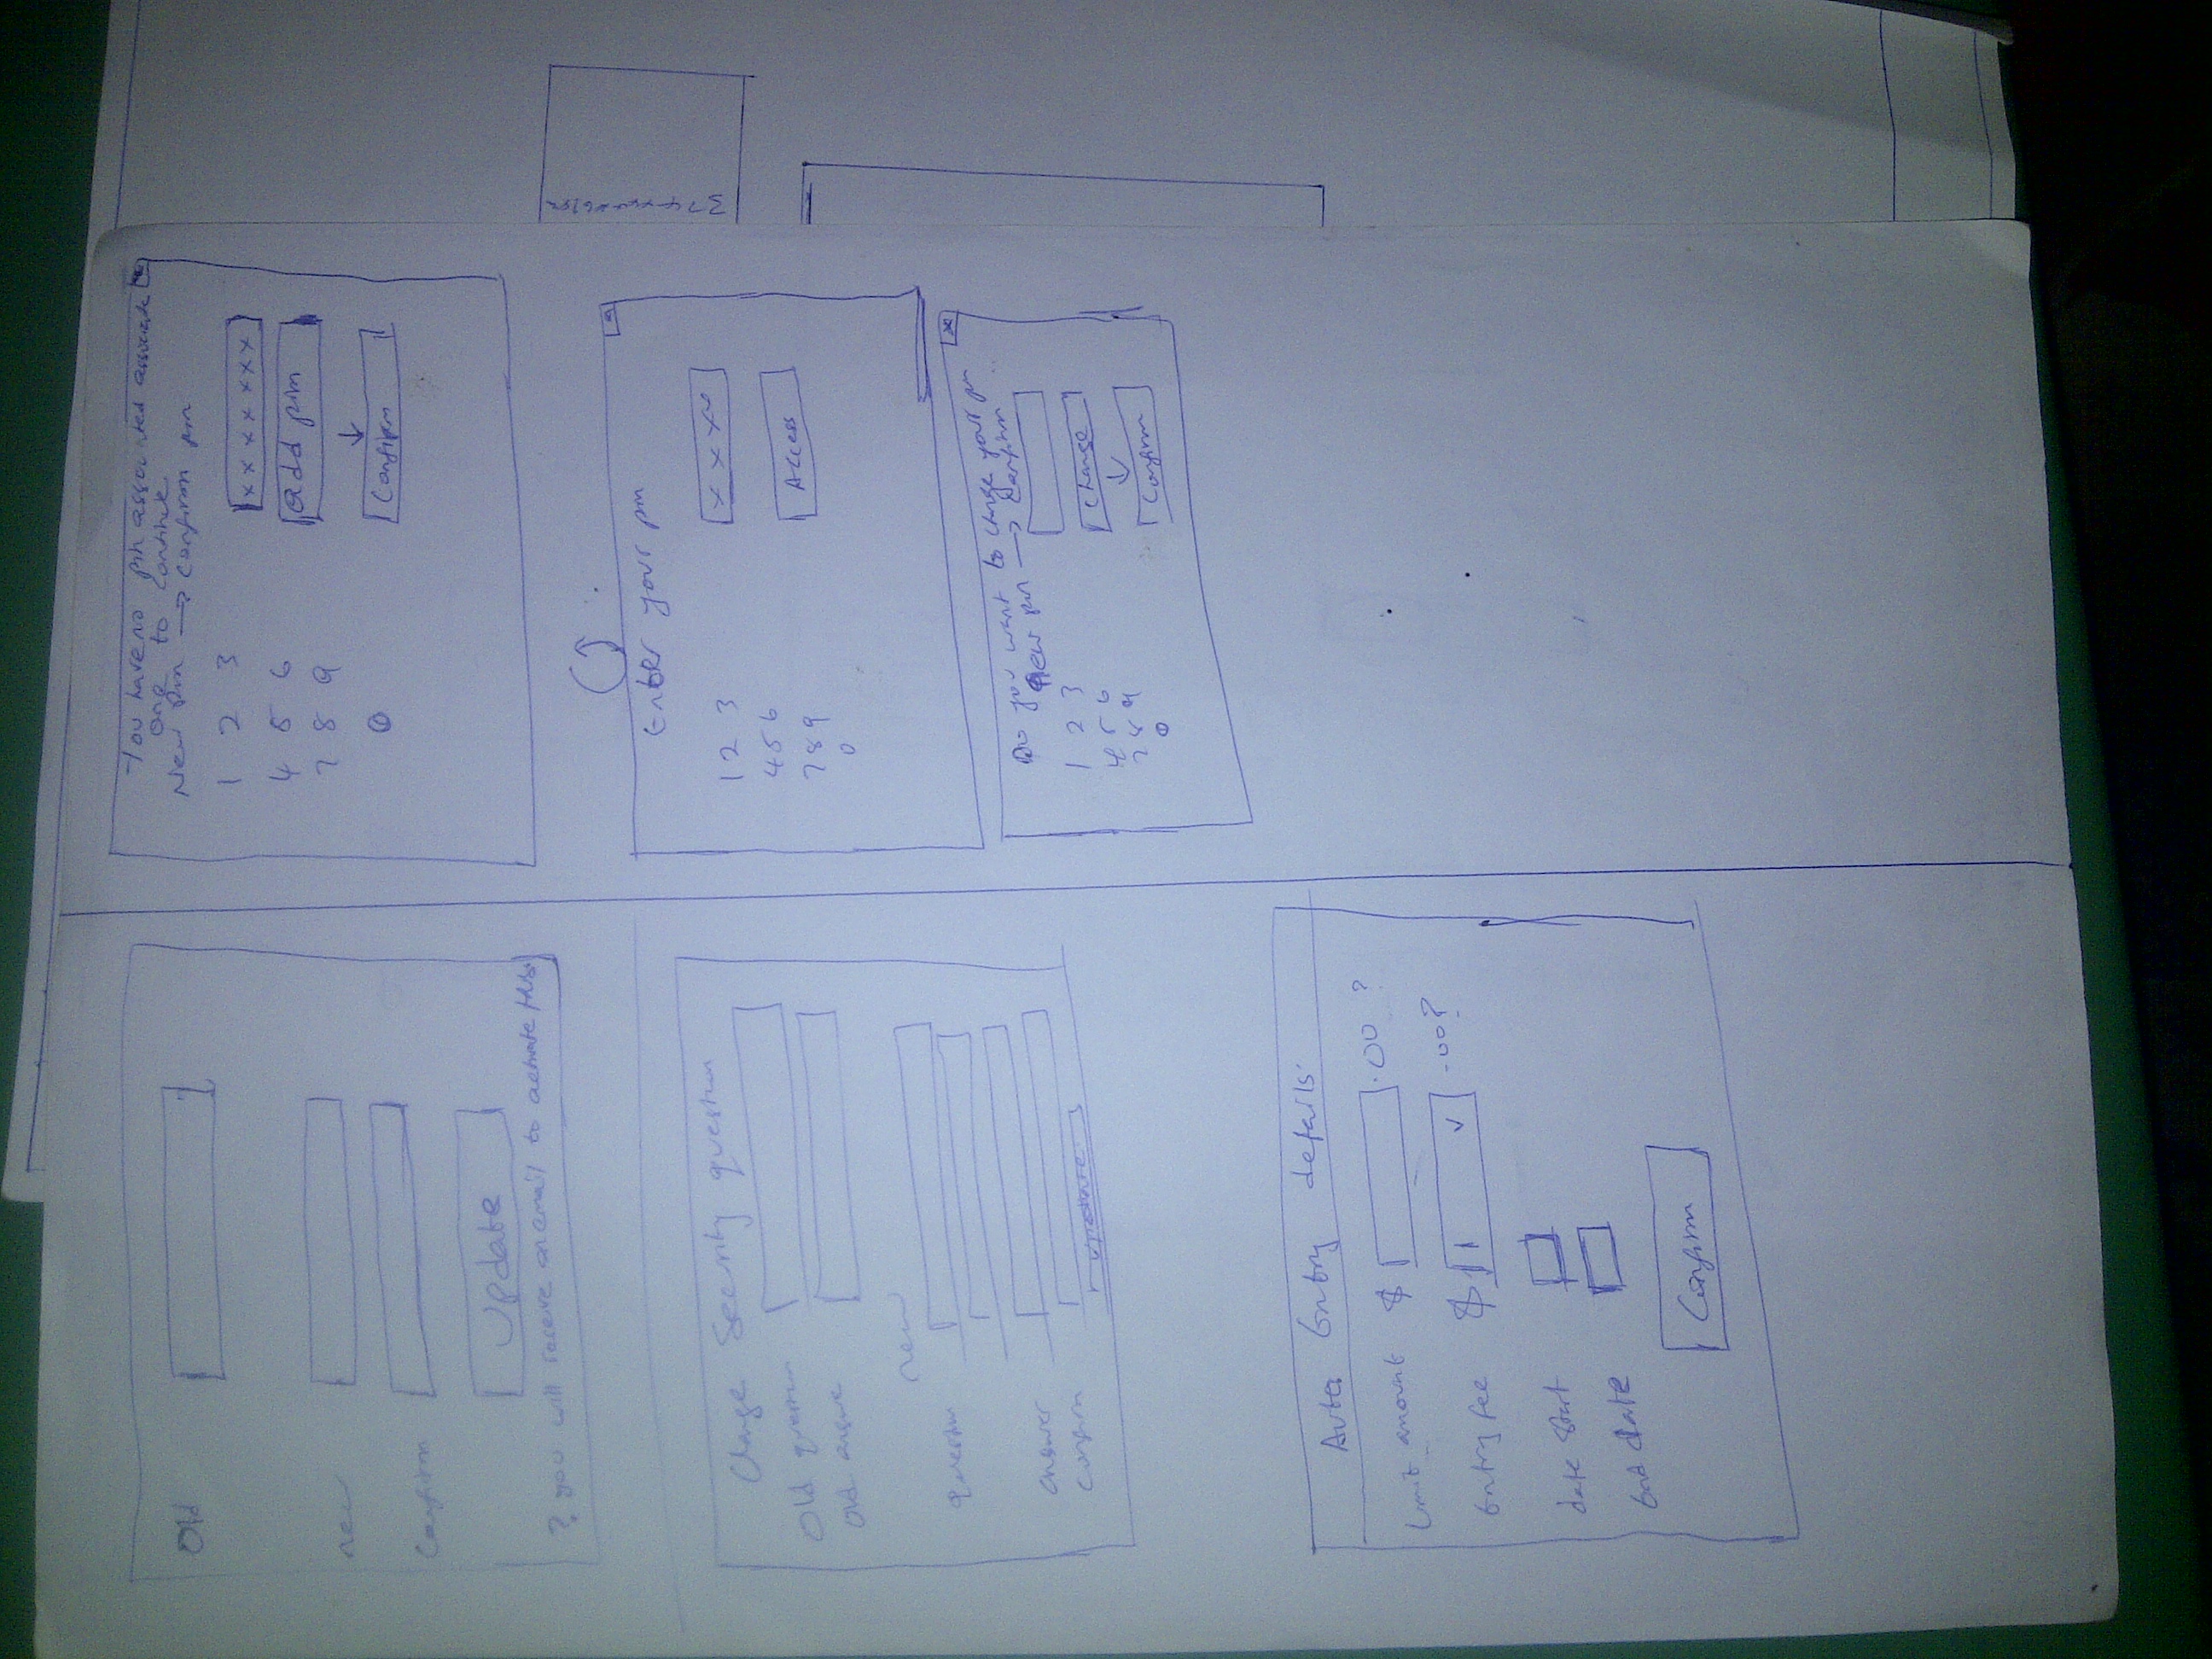 Old
new
Confirm
Update
? you will receive an email to activate this.
Change Security question
Old question
Old answe
new
question
answer
Confirm
update
Auto Entry details
Limit amount $ .00 ?
Entry fee $ 1 .00?
date Start
End date
Confirm
You have no pin associated associate
one to continue
New Pin → Confirm pin
1 2 3
x x x x x x x
4 5 6
add pin
7 8 9
↓
0
Confirm
Enter your pin
1 2 3
x x x x
4 5 6
Access
7 8 9
0
x
Do you want to change your pin
New pin → Confirm
1 2 3
change
4 5 6
↓
7 8 9
Confirm
0